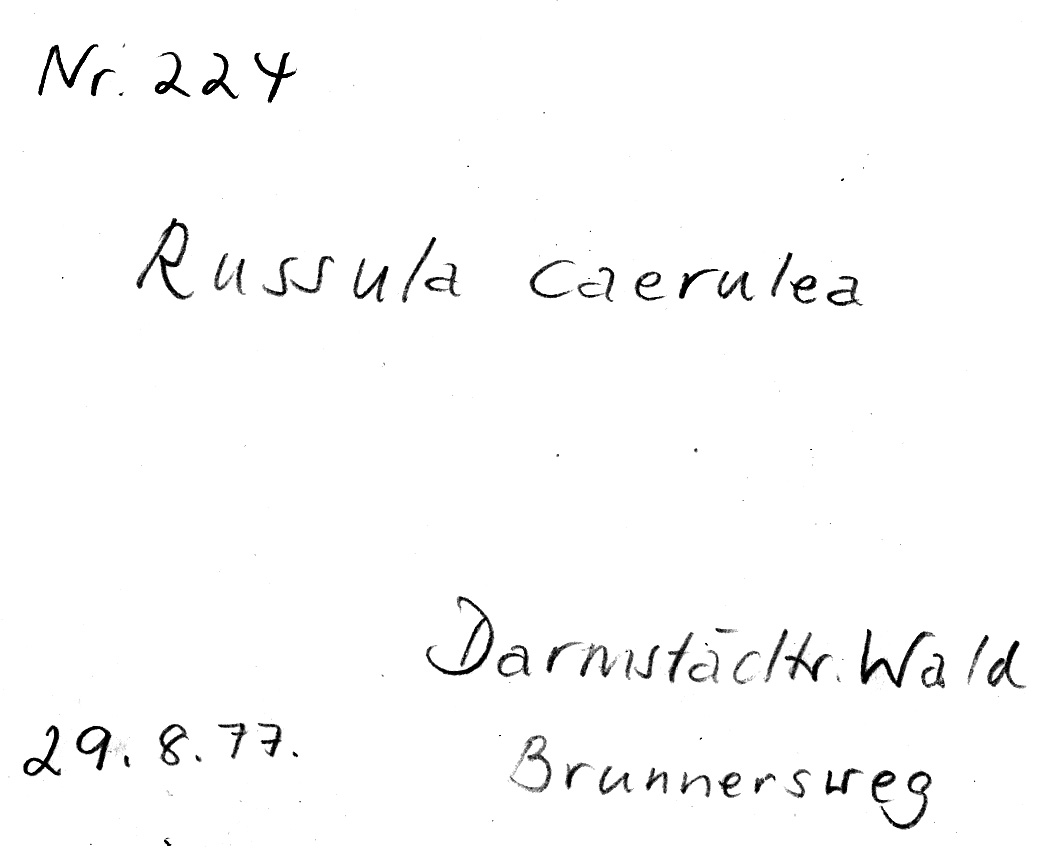 Nr. 224
Russula caerulea
Darmstädtr. Wald
29.8.77.
Brunnersweg